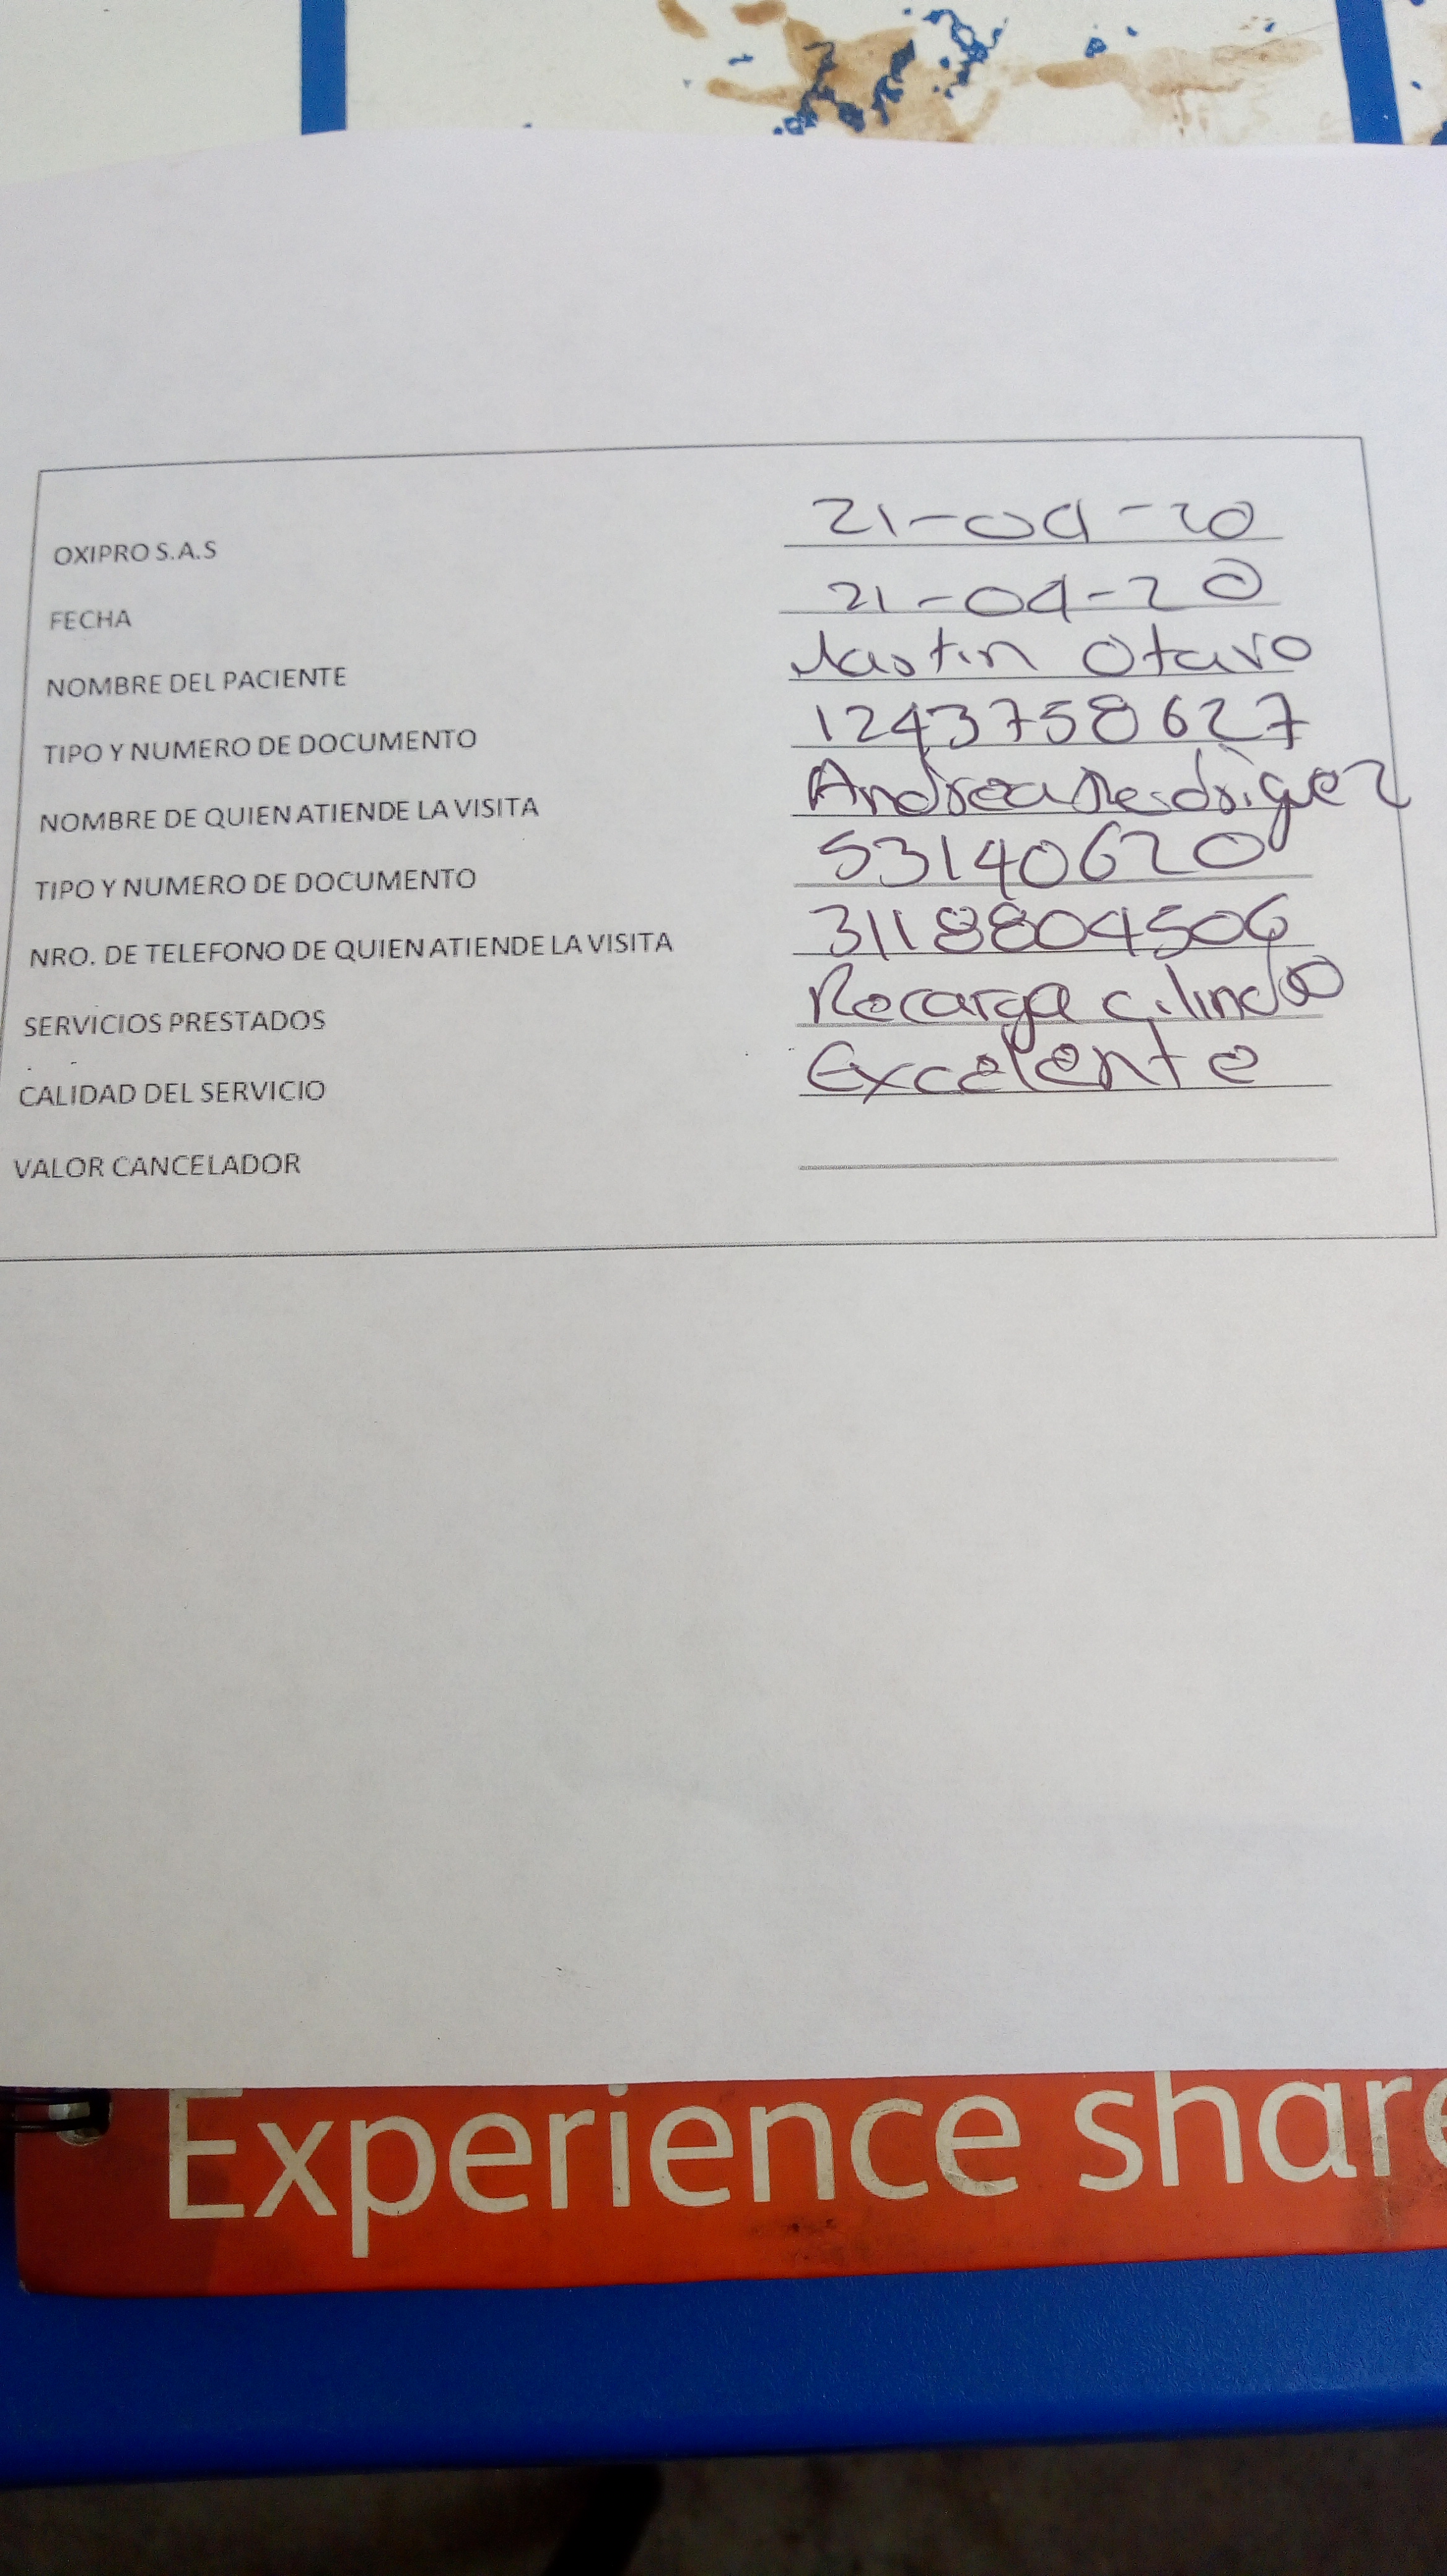 OXIPRO S.A.S 21-04-20
FECHA 21-04-20
NOMBRE DEL PACIENTE Martin Otavo
TIPO Y NUMERO DE DOCUMENTO 1243758627
NOMBRE DE QUIEN ATIENDE LA VISITA Andrea Rodriguez
TIPO Y NUMERO DE DOCUMENTO 53140620
NRO. DE TELEFONO DE QUIEN ATIENDE LA VISITA 3118804506
SERVICIOS PRESTADOS Recarga cilindro
CALIDAD DEL SERVICIO Excelente
VALOR CANCELADOR
Experience share